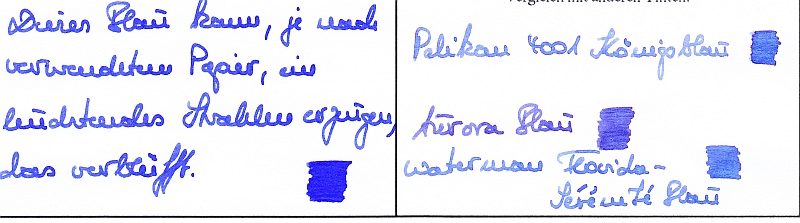 Dieses Blau kann, je nach
verwendetem Papier, ein
leuchtendes Strahlen erzeugen,
das verblüfft.
Vergleich mit anderen Tinten:
Pelikan 4001 Königsblau
Aurora Blau
Waterman Florida-
Sérénité Blau